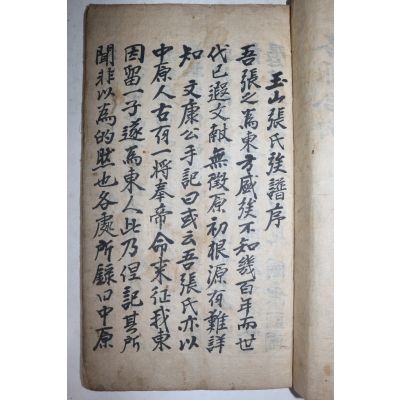 玉山張氏族譜序
吾張之為東方盛族不知幾百年而世
代已遐文献無徵原初根源有難詳
知 文康公手記曰或云吾張氏亦以
中原人古有一将奉帝命来征我東
因留一子遂為東人此乃但記其所
聞非以為的然也各處所錄曰中原